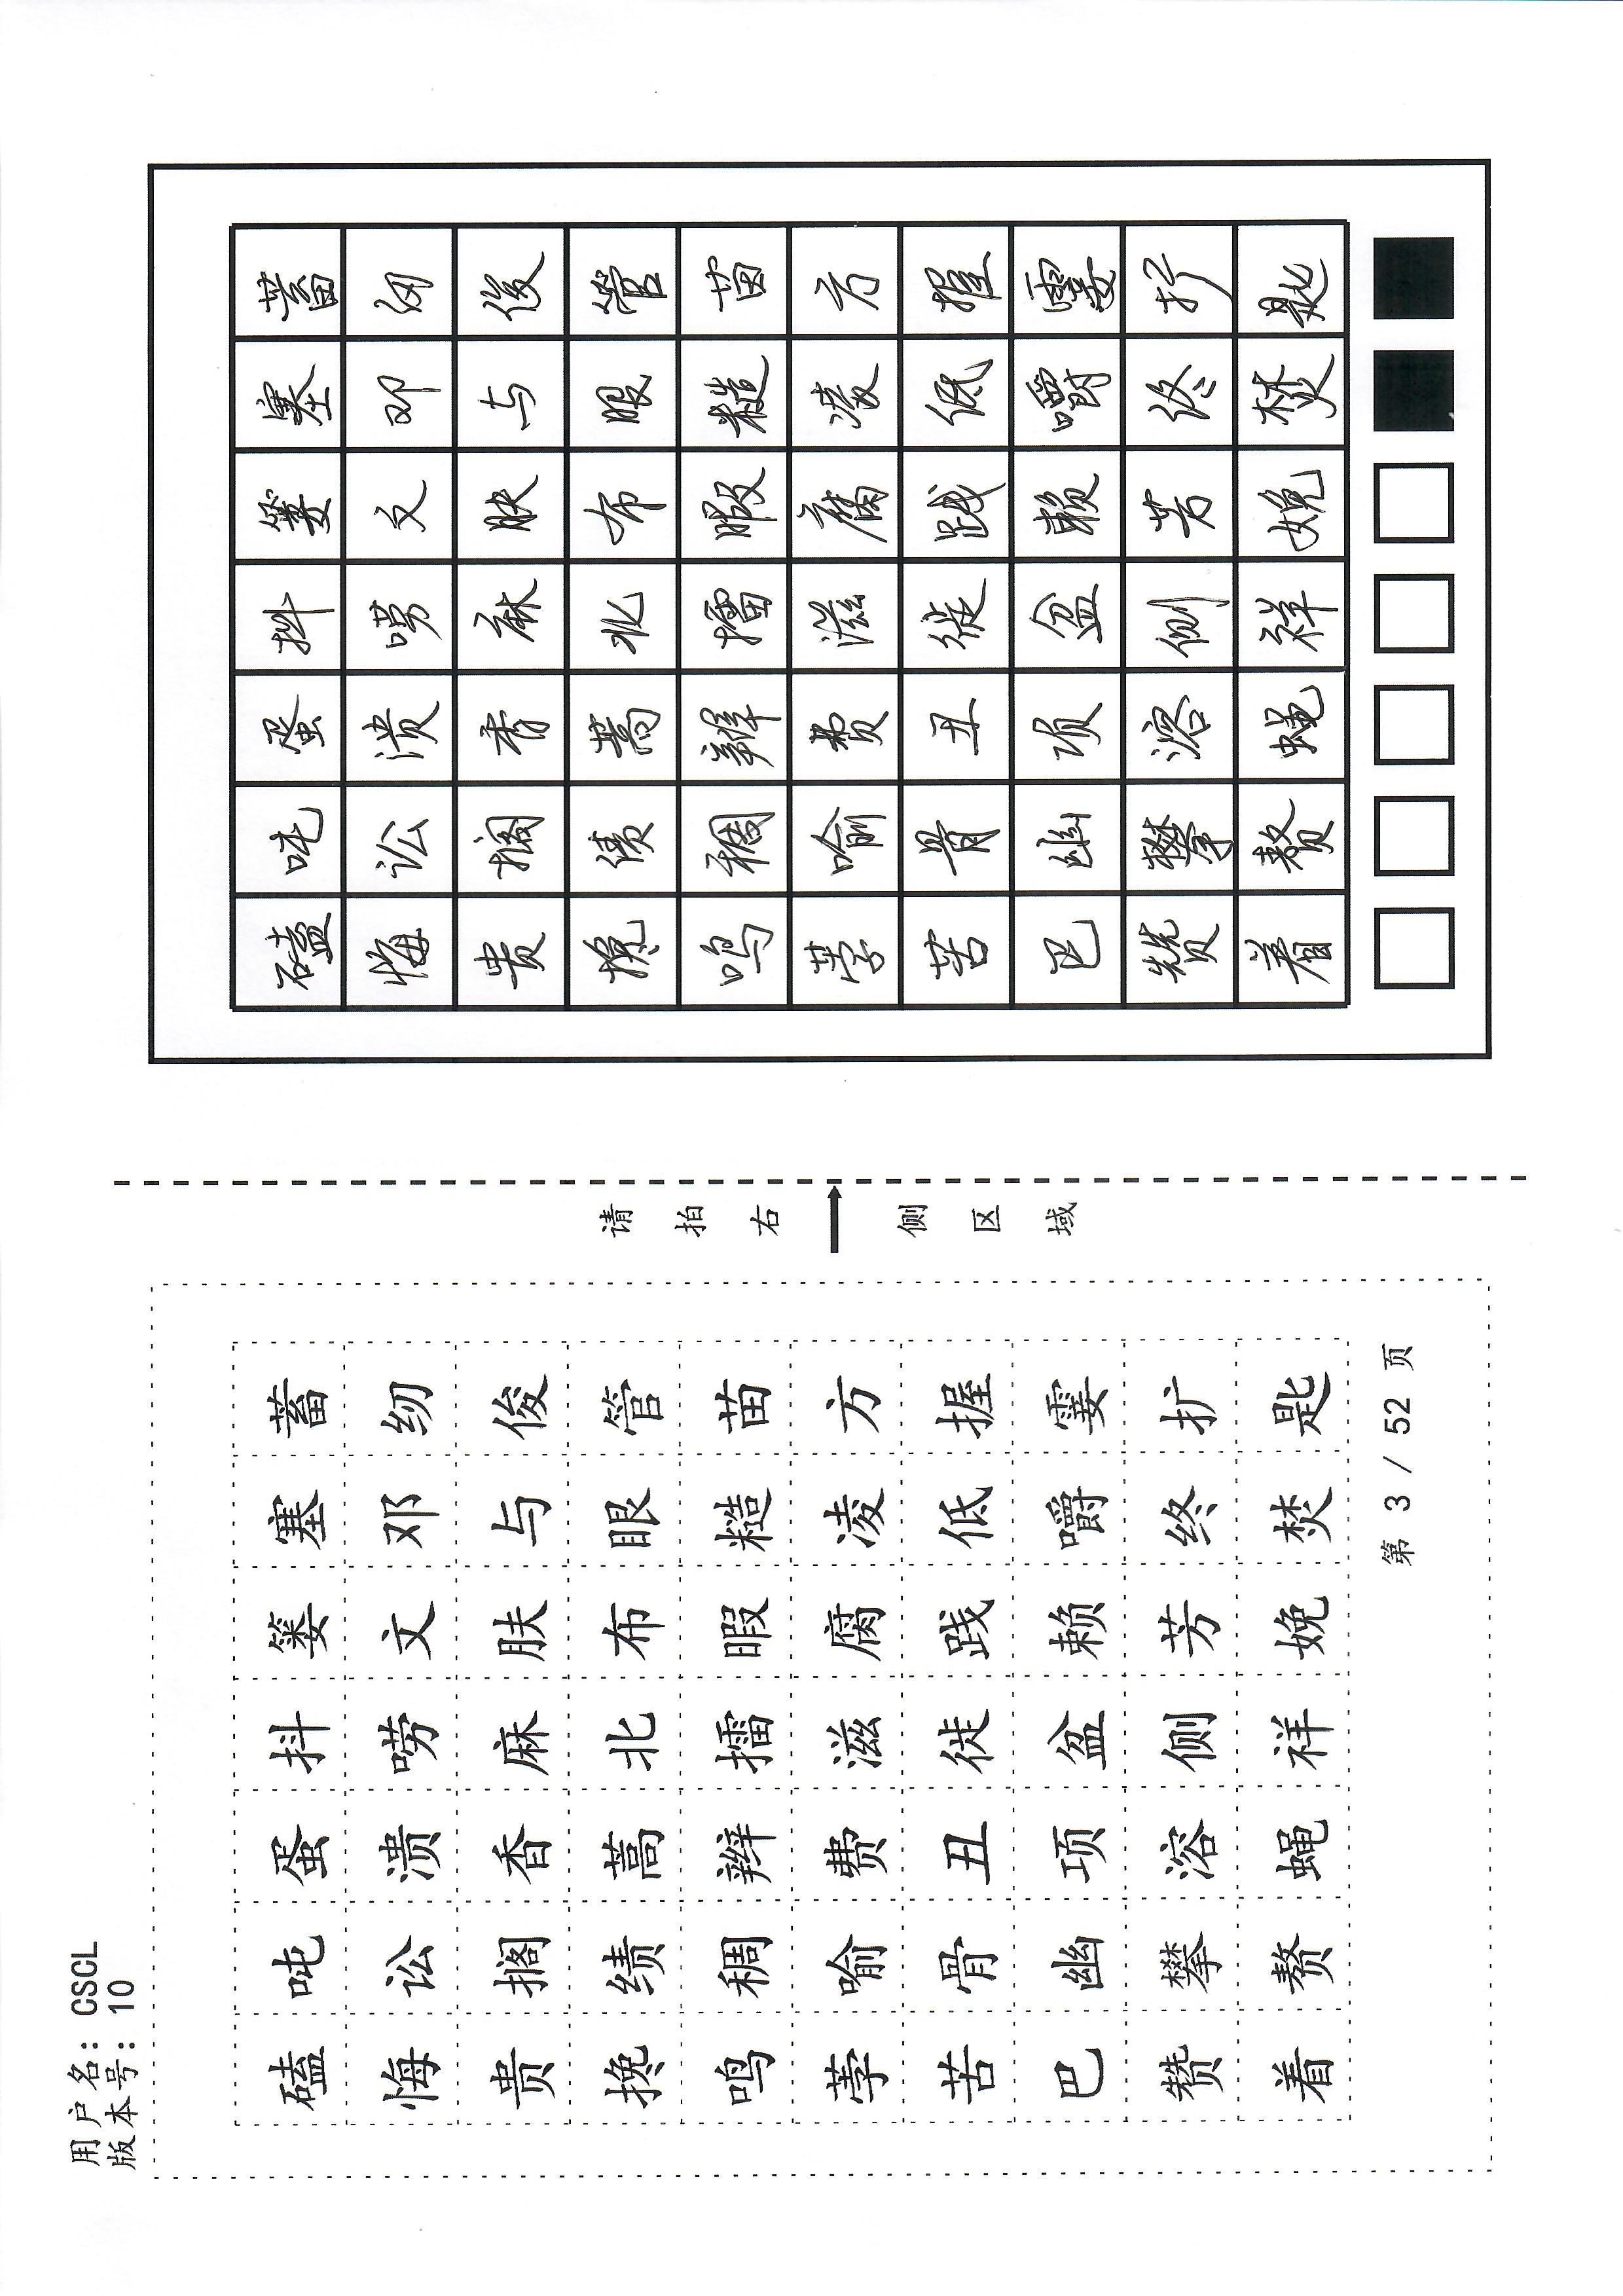 用户名: CSCL
版本号: 10
磕吨蛋抖篓塞蓄
悔讼溃唠文邓纫
贵搁香麻肤与俊
搀绩蒿北布眼管
鸣稠辨擂暇糙苗
荸喻费滋腐凌方
苦骨丑徒践低握
巴幽项盆赖嚼霎
赞攀溶侧芳终扩
着赘蝇祥娩焚匙
第 3 / 52 页
请拍右
侧区域
磕吨蛋抖篓塞蓄
悔讼溃唠文邓纫
贵搁香麻肤与俊
搀绩蒿北布眼管
鸣稠辨擂暇糙苗
荸喻费滋腐凌方
苦骨丑徒践低握
巴幽项盆赖嚼霎
赞攀溶侧芳终扩
着赘蝇祥娩焚匙